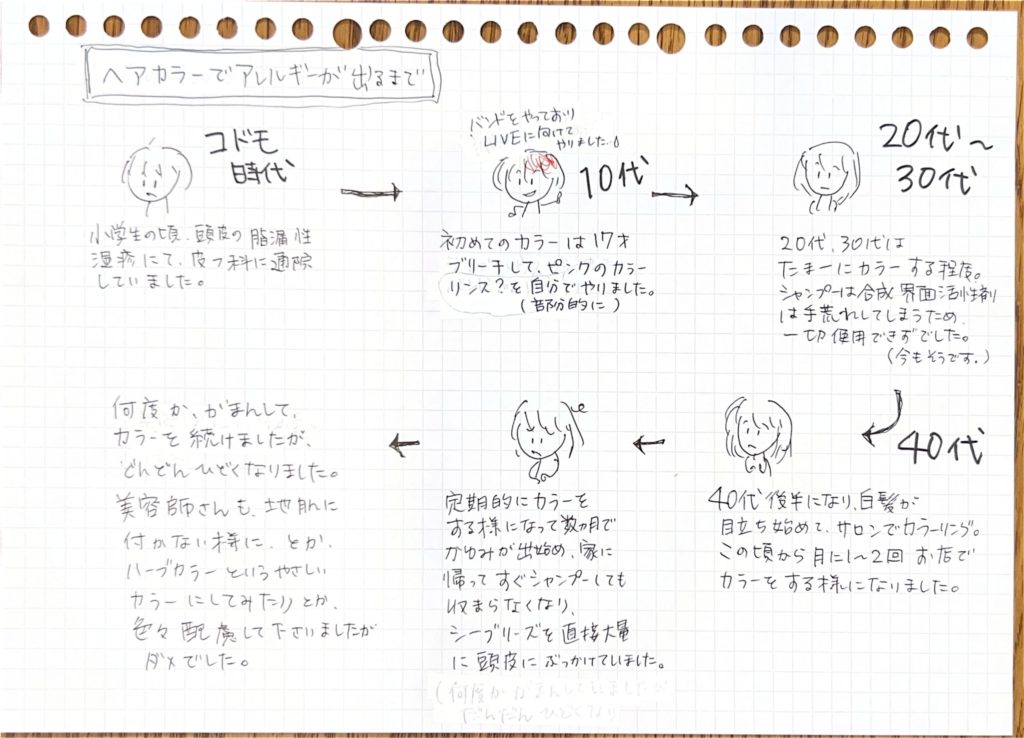 ヘアカラーでアレルギーが出るまで
コドモ
時代
小学生の頃、頭皮の脂漏性
湿疹にて、皮フ科に通院
していました。
バンドをやっており
LIVEに向けて
やりました♪
10代
初めてのカラーは17才
ブリーチして、ピンクのカラー
リンス?を自分でやりました。
(部分的に)
20代～
30代
20代、30代は
たまーにカラーする程度。
シャンプーは合成界面活性剤
は手荒れしてしまうため、
一切使用できずでした。
(今もそうです。)
40代
40代後半になり、白髪が
目立ち始めて、サロンでカラーリング。
この頃から月に1～2回お店で
カラーをする様になりました。
定期的にカラーを
する様になって数ヵ月で
かゆみが出始め、家に
帰ってすぐシャンプーしても
収まらなくなり、
シーブリーズを直接大量
に頭皮にぶっかけていました。
(何度かがまんしてましたが
だんだんひどくなり
何度か、がまんして、
カラーを続けましたが、
どんどんひどくなりました。
美容師さんも、地肌に
付かない様に、とか、
ハーブカラーというやさしい
カラーにしてみたりとか、
色々配慮して下さいましたが
ダメでした。